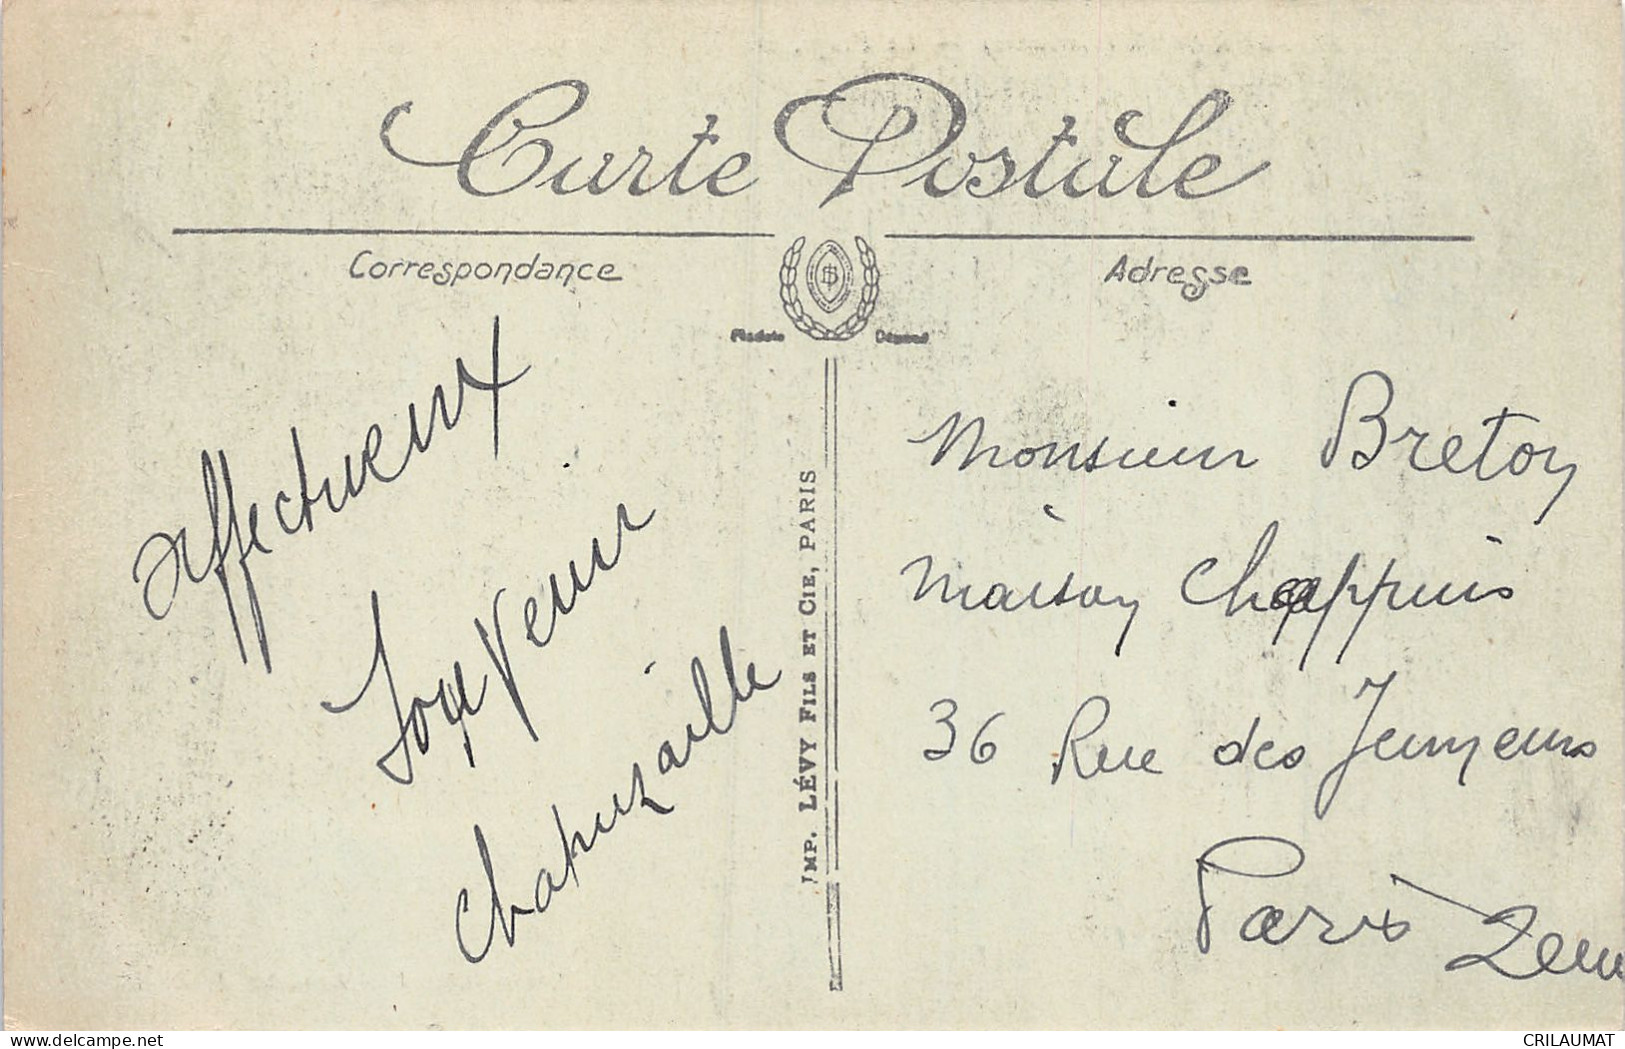 Carte Postale
Correspondance
Adresse
Modèle Déposé
affectueux
souvenir
IMP. LÉVY FILS ET CIE, PARIS
Monsieur Breton
maison Chappuis
36 Rue des Jeuneurs
Paris 2em
delcampe.net
CRILAUMAT